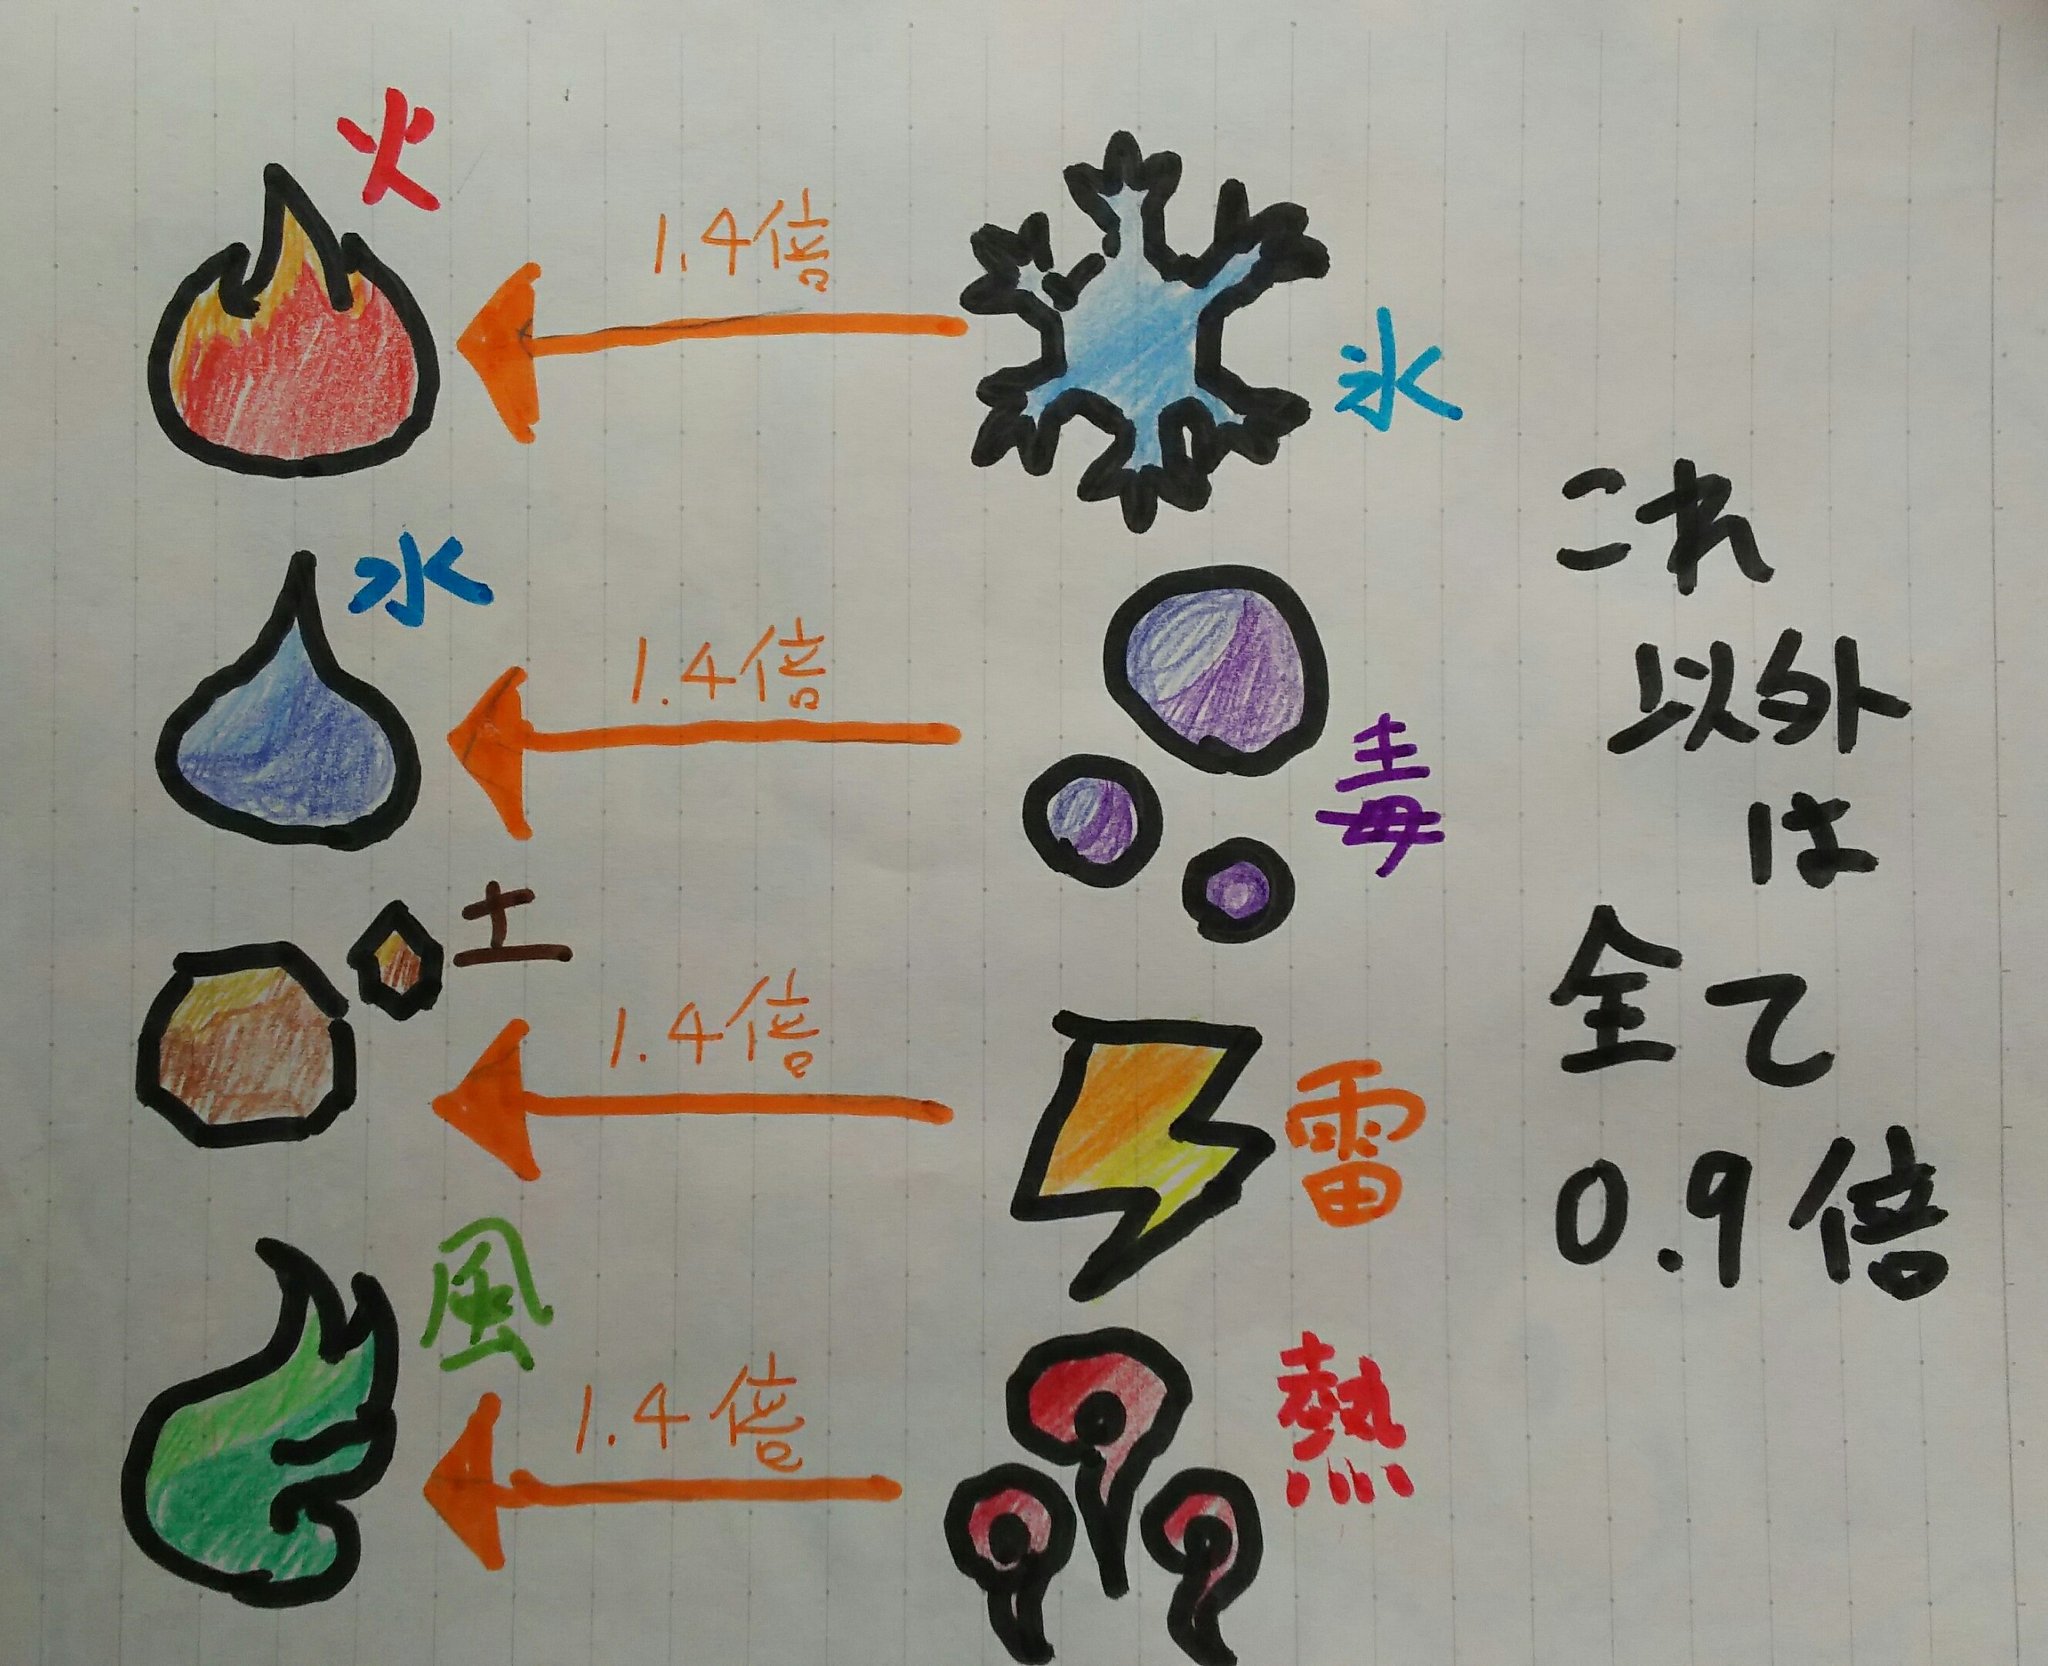 火
1.4倍
氷
水
1.4倍
毒
土
1.4倍
雷
風
1.4倍
熱
これ
以外
は
全て
0.9倍